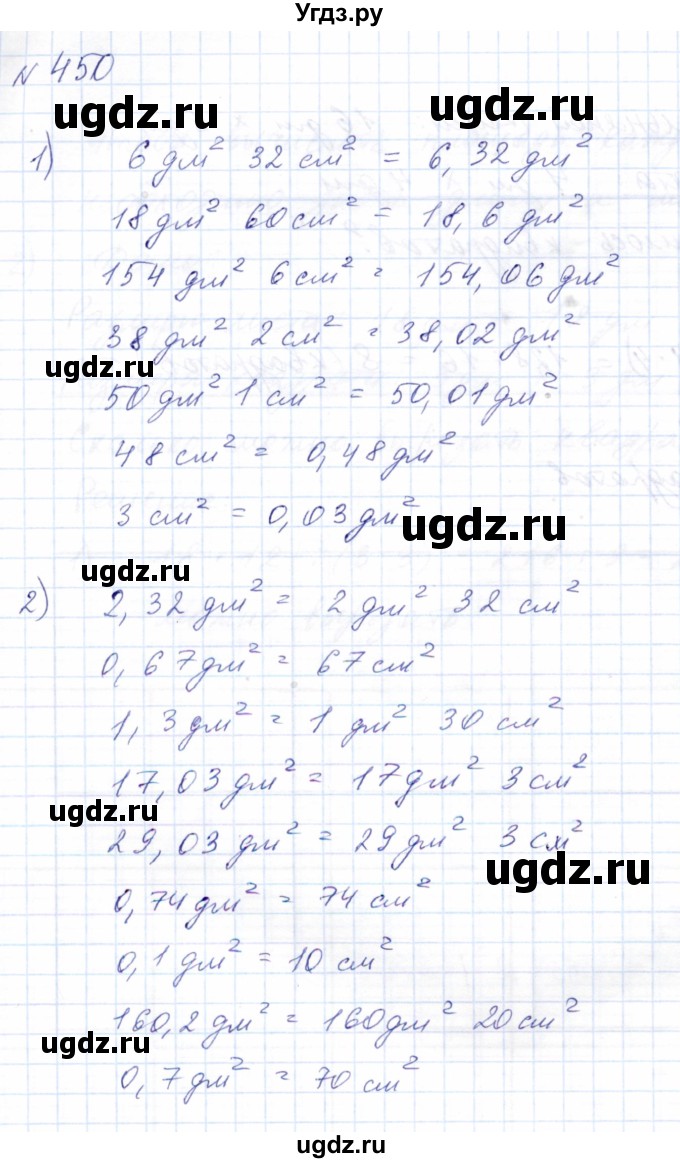 Угдз.ру
№ 450
ugdz.ru ugdz.ru
1) 6 дм² 32 см² = 6,32 дм²
18 дм² 60 см² = 18,6 дм²
154 дм² 6 см² = 154,06 дм²
38 дм² 2 см² = 38,02 дм²
ugdz.ru
50 дм² 1 см² = 50,01 дм²
48 см² = 0,48 дм²
3 см² = 0,03 дм²
ugdz.ru
ugdz.ru
2) 2,32 дм² = 2 дм² 32 см²
0,67 дм² = 67 см²
1,3 дм² = 1 дм² 30 см²
17,03 дм² = 17 дм² 3 см²
ugdz.ru
29,03 дм² = 29 дм² 3 см²
ugdz.ru
0,74 дм² = 74 см²
0,1 дм² = 10 см²
160,2 дм² = 160 дм² 20 см²
ugdz.ru
0,7 дм² = 70 см²
ugdz.ru